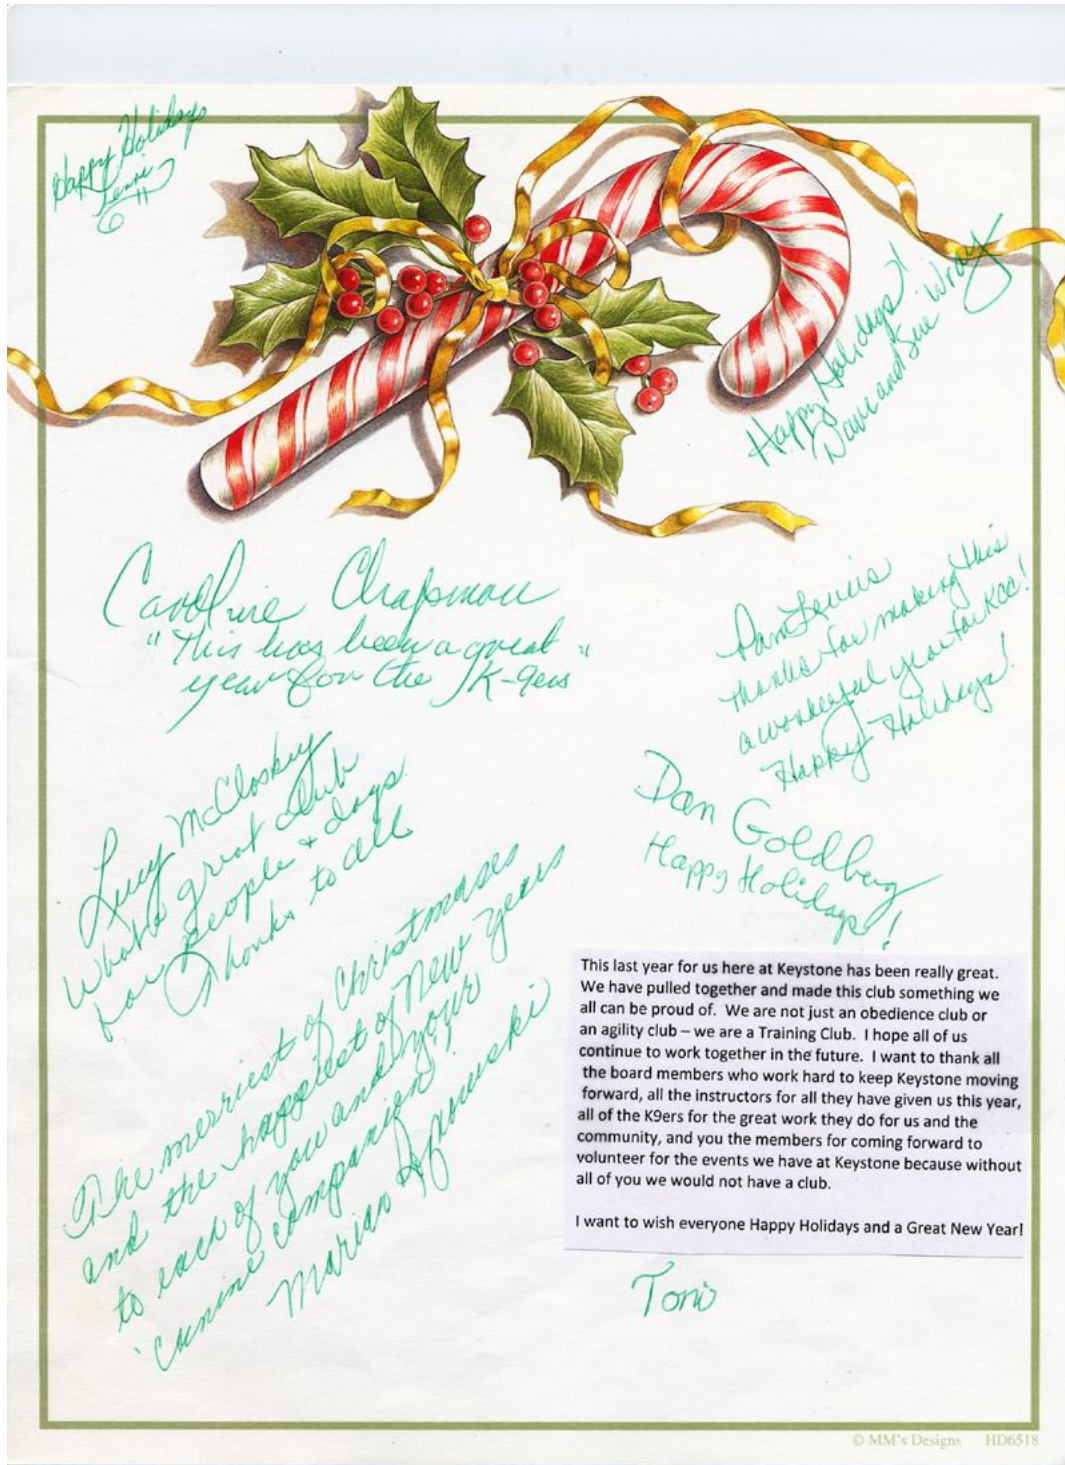 Happy Holidays
Happy Holidays!
Dave and Sue Wray
Caroline Chapman
"This has been a great
year for the K-9ers"
Pam Lewis
Thanks for making this
a wonderful year for KCC!
Happy Holidays!
Lucy McCloskey
What a great club
for people & dogs
Thanks to all
Dan Goldberg
Happy Holidays!
The merriest of Christmases
and the happiest of New Years
to each of you and your
'canine companion'!
Marian
This last year for us here at Keystone has been really great.
We have pulled together and made this club something we
all can be proud of. We are not just an obedience club or
an agility club – we are a Training Club. I hope all of us
continue to work together in the future. I want to thank all
the board members who work hard to keep Keystone moving
forward, all the instructors for all they have given us this year,
all of the K9ers for the great work they do for us and the
community, and you the members for coming forward to
volunteer for the events we have at Keystone because without
all of you we would not have a club.
I want to wish everyone Happy Holidays and a Great New Year!
Toni
© MM's Designs HD6518